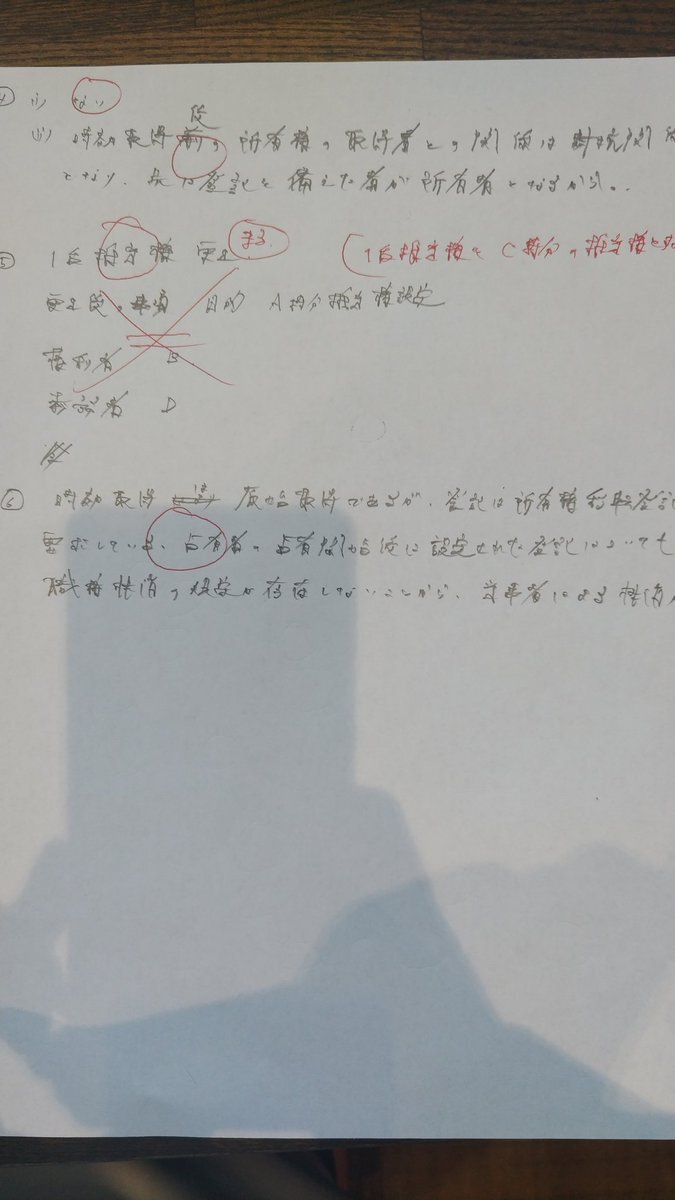 ④ (i) ない
後
(ii) 時効取得前の所有権の取得者との関係は対抗関係
となり、先に登記を備えた者が所有者となるから。
⑤ 1番抵当権 変更 まる (1番抵当権を C持分の抵当権とする
変更後の事項 目的 A持分抵当権設定
権利者 B
義務者 D
⑥ 時効取得は 原始取得であるが、登記は所有権移転登記
要求している、占有者の占有開始後に設定された登記についても
職権抹消の規定が存在しないことから、